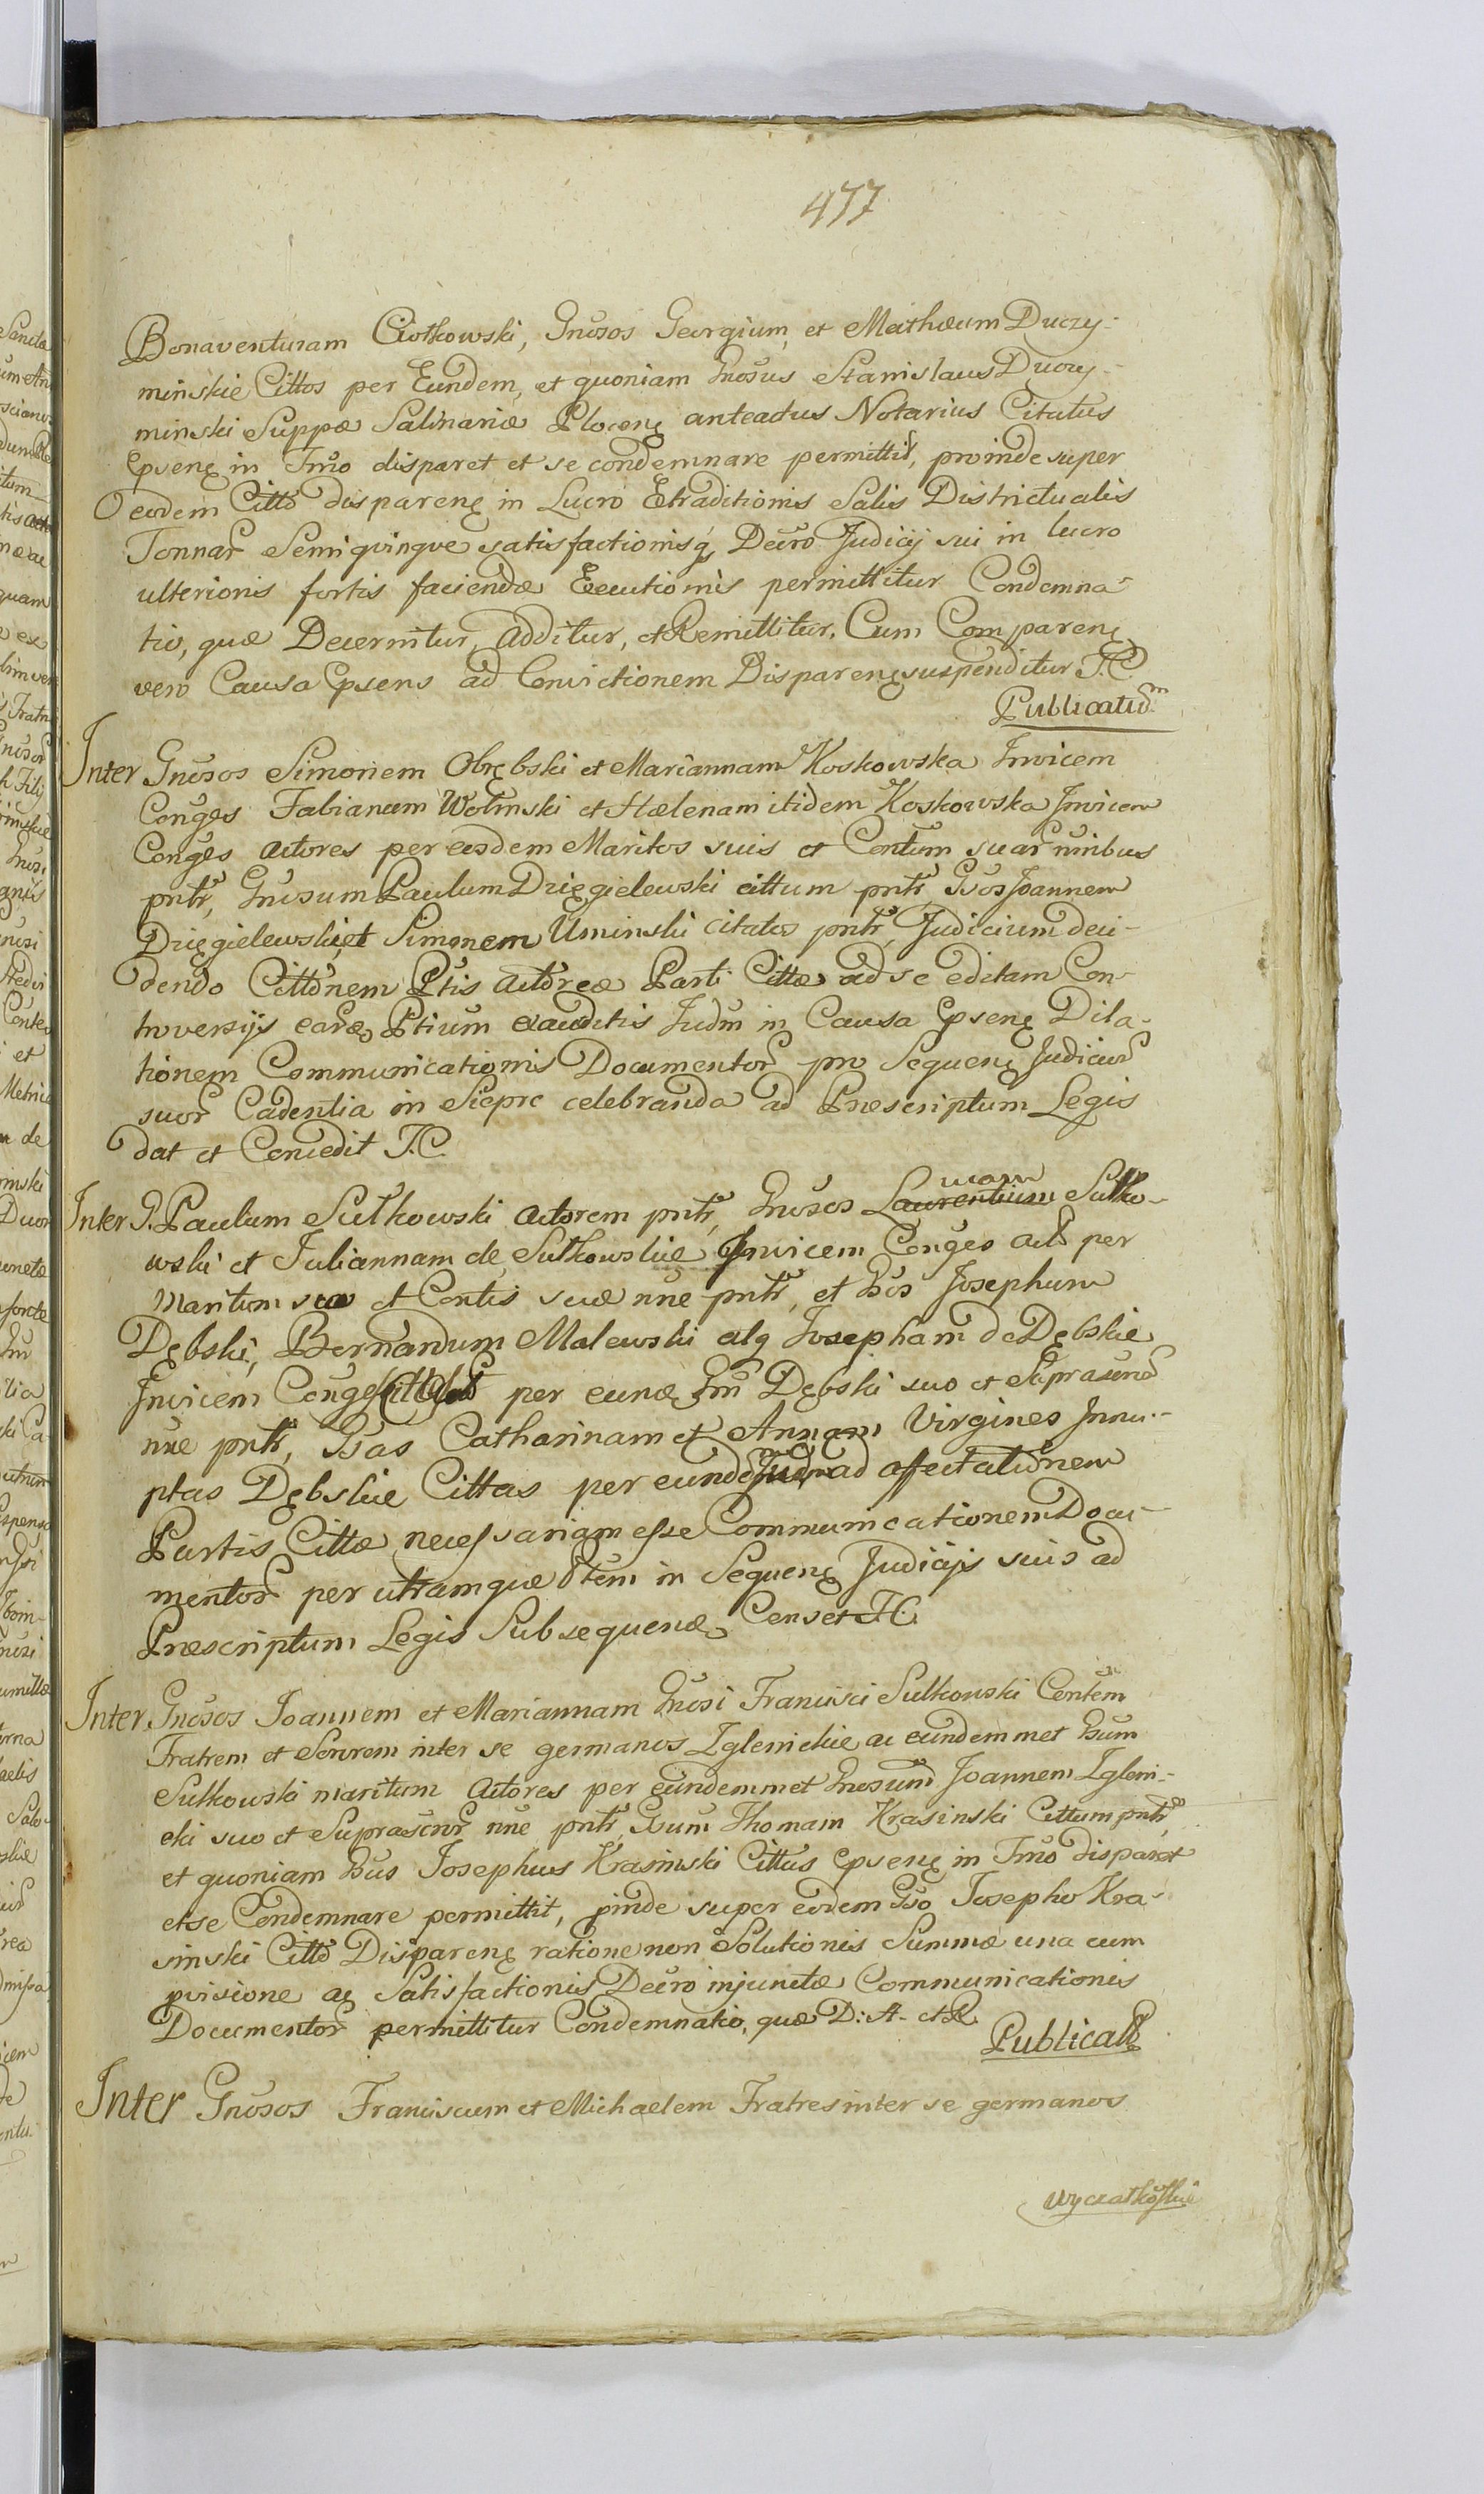 477
Bonaventuram Ciołkowski, Gnosos Georgium, et Mathæum Duczy-
minskie Cittos per Eundem, et quoniam Gnosus Stanislaus Duczy-
minski Suppæ Salinariæ Plocen anteactus Notarius Citatus
Cpsens in Tmo disparet et se condemnare permittit, proinde super
eodem Citto disparen in Lucro Etraditionis Salis Districtualis
Tonnar Semiqvinqve satisfactionisq Decro Judicij sui in lucro
ulterionis fortis faciendæ Eecutionis permittitur Condemna-
tio, quæ Decernitur, additur, et Remittitur. Cum Comparen
vero Causa Cpsens ad Convictionem Disparen suspenditur T.C.
Publicatum
Inter Gnosos Simonem Obrębski et Mariannam Koskowska Invicem
Conges Fabianum Wolinski et Hælenam itidem Koskowska Invicem
Conges actores per eosdem Maritos suis et Contum suar nnibus
pntr, Gnosum Paulum Dzięgielewski cittum pntr, Gsos Joannem
Dzięgielewski, et Simonem Uminski citatos pntr, Judicium deci-
dendo Cittonem Ptis actoreæ Parti Cittæ ad se editam Con-
troversijs earq Ptium exauditis Judm in Causa Cpsen Dila-
tionem Communicationis Documentor pro Sequen Judicior
suor Cadentia in Sieprc celebranda ad Præscriptum Legis
dat et Concedit T.C.
Inter G. Paulum Sułkowski actorem pntr, Gnosos Laurentium Sułko-
wski et Juliannam de Sułkowskie Invicem Conges act per
Maritum suo et Contis suæ nne pntr, et Gsos Josephum
Dębski, Bernardum Malewski atq Josepham de Dębskie
Invicem Conges per eunq Gm Dębski suo et Suprascr
nne pntr, Gsas Catharinam et Annam Virgines Innu-
ptas Dębskie Cittas per eunde Judm ad affectationem
Partis Cittæ necessariam esse Communicationem Docu-
mentor per utramque Ptem in Sequen Judicijs suis ad
Præscriptum Legis Subsequenq Censet T.C.
Inter Gnosos Joannem et Mariannam Gnosi Francisci Sulkowski Contem
Fratrem et Sororem inter se germanos Zglenickie ac eundemmet Gsum
Sulkowski maritum actores per eundemmet Gnosum Joannem Zgleni-
cki suo et Suprascr nne pntr, Gsum Thomam Krasinski Cittum pntr,
et quoniam Gsus Josephus Krasinski Cittus Cpsens in Tmo disparet
et se Condemnare permittit, pinde super eodem Gso Josepho Kra-
sinski Citto Disparen ratione non Solutionis Summæ una cum
pvisione ac Satisfactionis Decro injunctæ Communicationis
Documentor permittitur Condemnatio, quæ D: A. et R.
Publicat
Inter Gnosos Franciscum et Michaelem Fratres inter se germanos